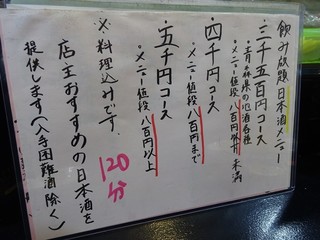 飲み放題日本酒メニュー
三千五百円コース
青森県の地酒各種
・メニュー値段 八百円 未満
四千円コース
・メニュー値段 八百円まで
五千円コース
・メニュー値段 八百円以上
※料理込みです。
120分
店主おすすめの日本酒を
提供します(入手困難酒除く)